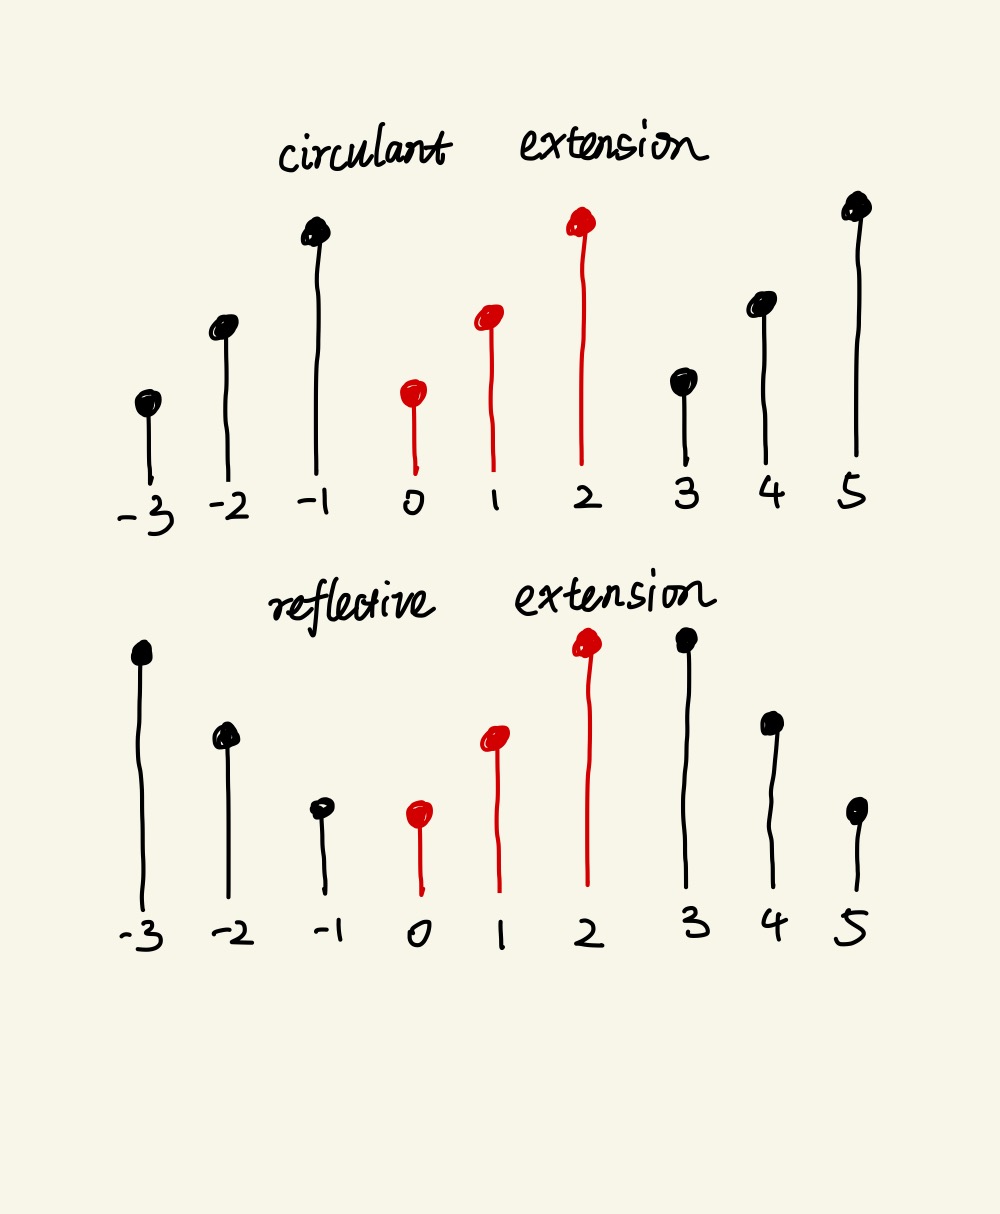 circulant extension
-3 -2 -1 0 1 2 3 4 5
reflective extension
-3 -2 -1 0 1 2 3 4 5